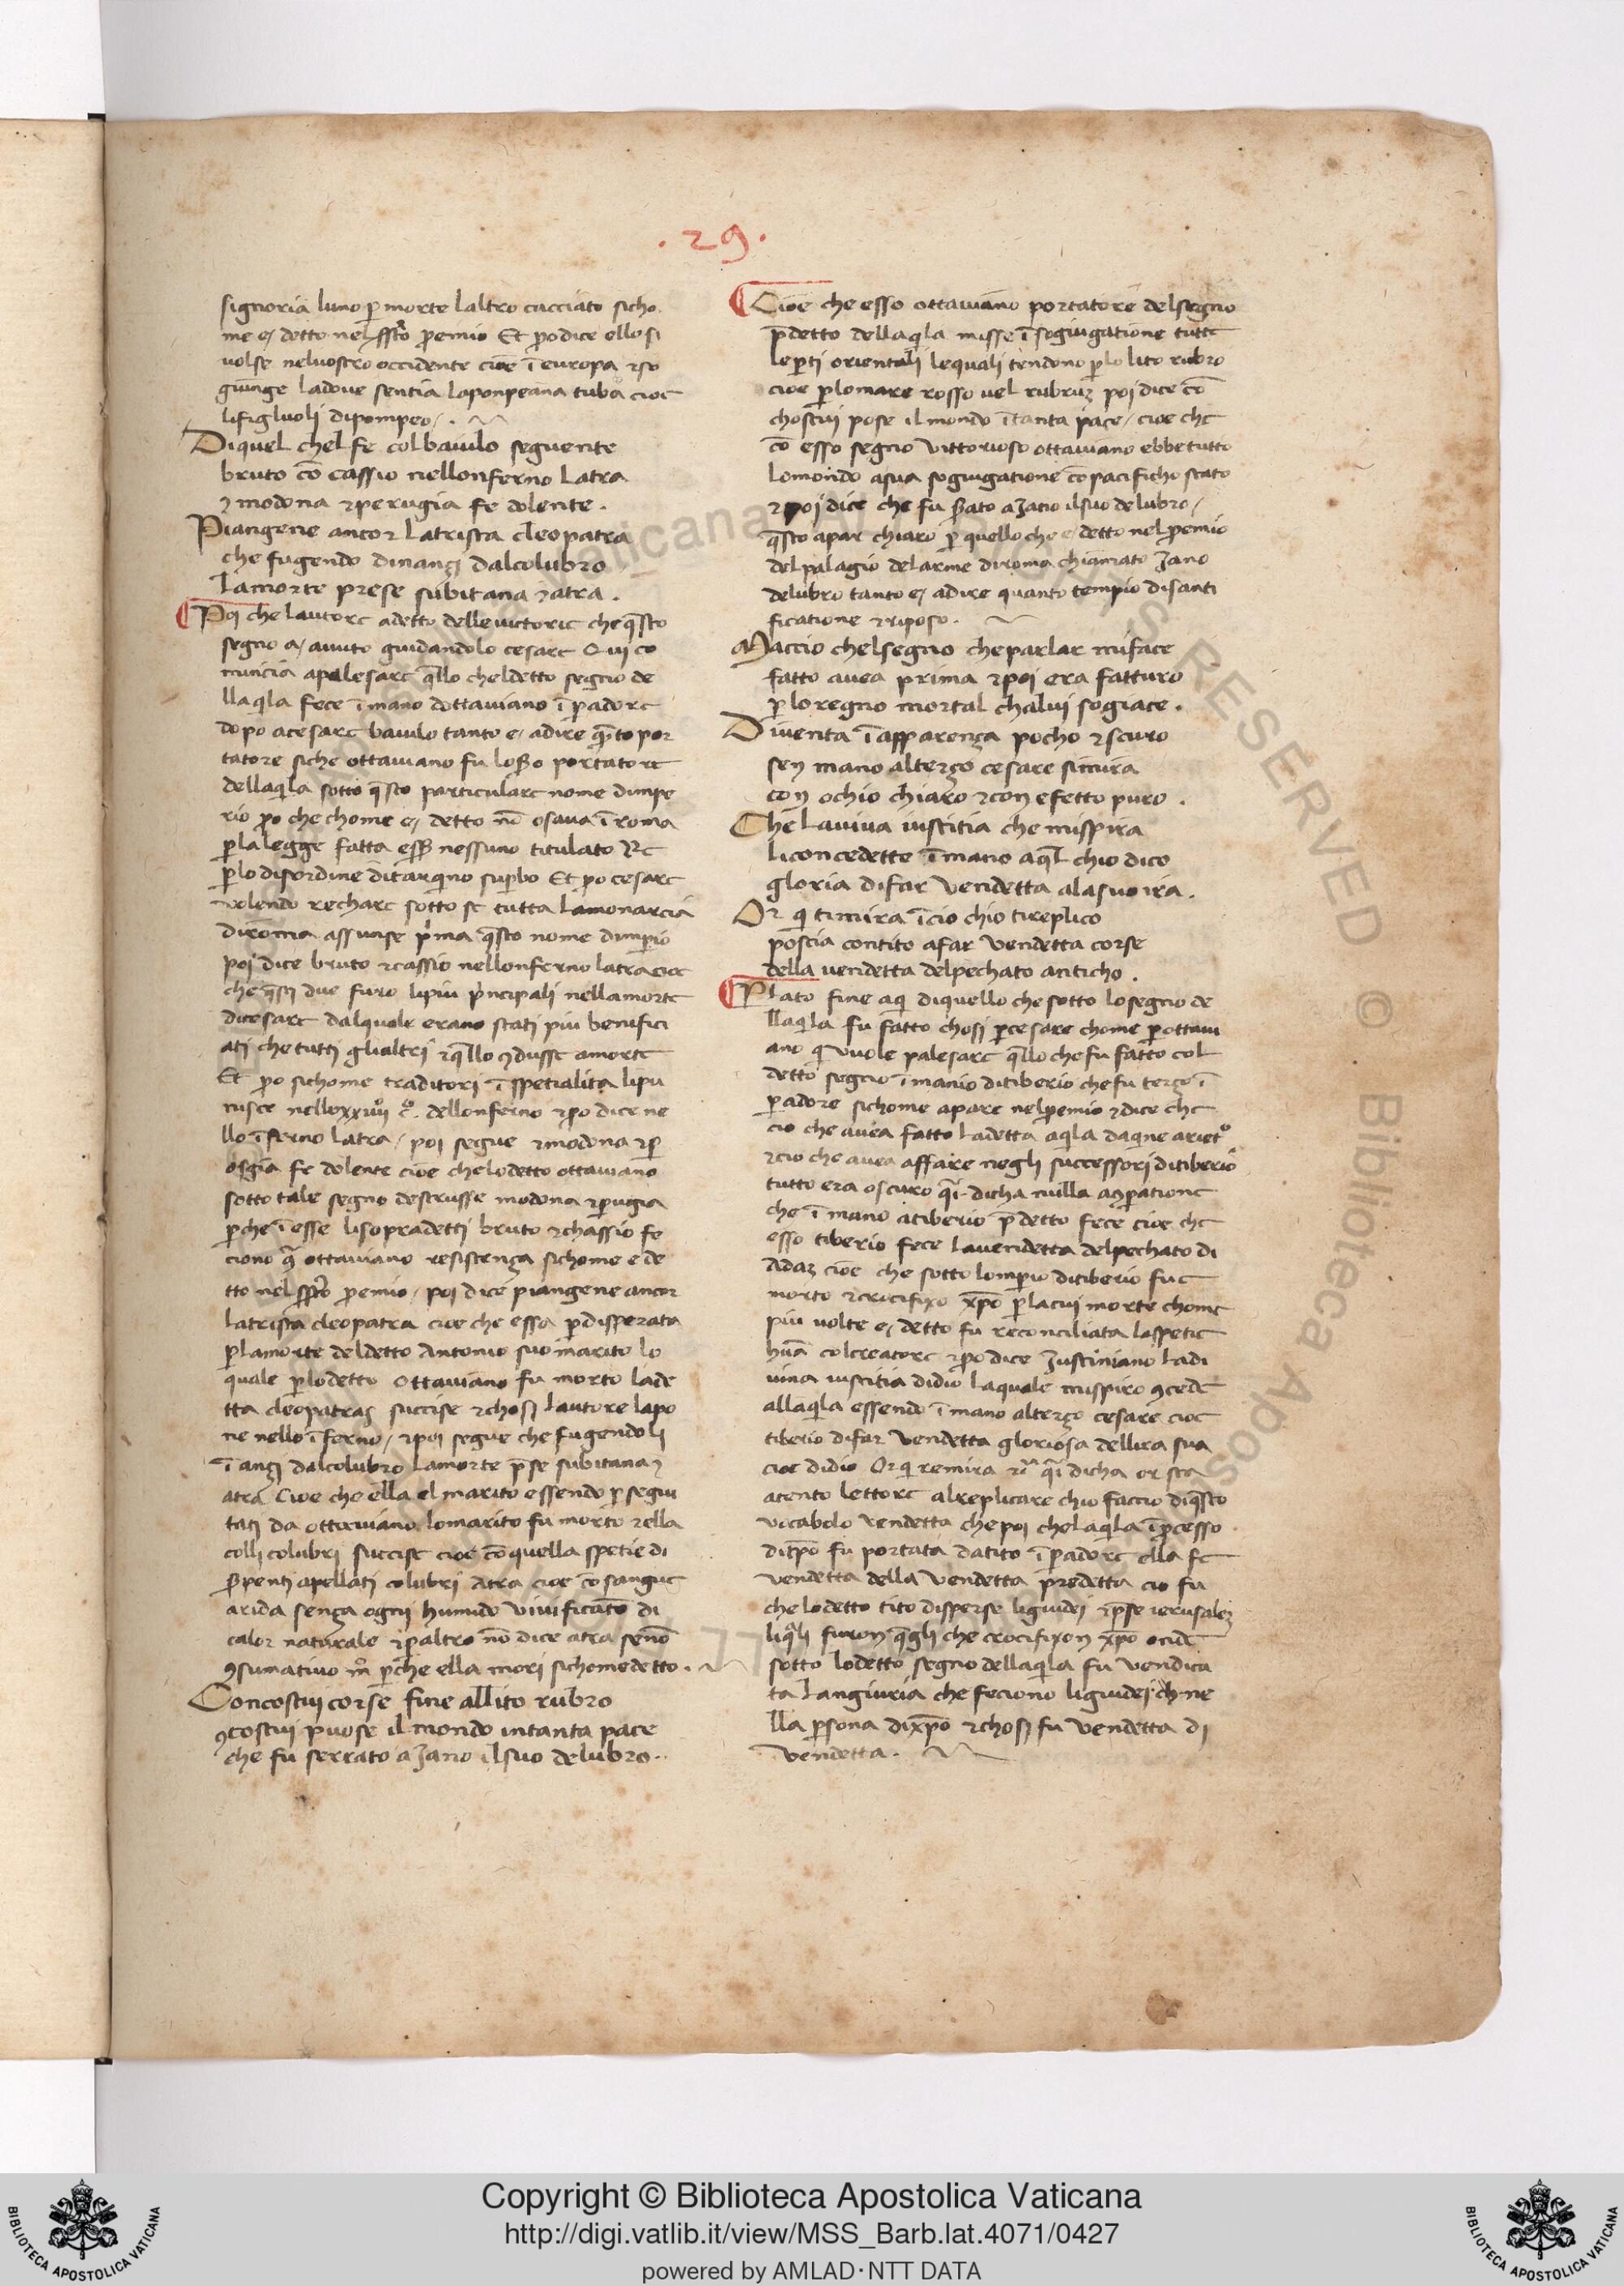 . 29 .
signoria luno p̱ morte laltro cacciato sicho
me e/ detto nel sṗto p̱emio Et p̱o dice ello si
volse nel vostro occidente cioe ī europa ⁊ so
giunge ladove sentia laponpeana tuba cioe
li figluoli dipompeo / .
Di quel chel fe col baiulo seguente
bruto cō cassio nellonferno latra
⁊ modona ⁊ perugia fe dolente .
Piangene ancor latrista cleopatra
che fugendo dinanzi dalcolubro
lamorte prese subitana ⁊ atra .
Poi che lautore a detto delle victorie che q̄sto
segno a/ auuto guidandolo cesare Qui co
mincia apalesare q̄llo cheldetto segno de
llaq̱la fece ī mano dottaviano ī p̱adore
dopo acesare baiulo tanto e/ adire q̄nto por
tatore siche ottaviano fu lo ßo portatore
dellaq̱la sotto q̄sto particulare nome dimpe
rio p̱o che chome e/ detto nō osava ī roma
p̱la legge fatta esse nessuno titulato Re
p̱lo disordine di tarq̱no sup̱bo Et p̱o cesare
volendo rechare sotto se tutta lamonarcia
di roma assunse p̱ma q̄sto nome dimp̱io
poi dice bruto ⁊ cassio nellonferno latra cioe
che q̄sti due furo lipiu p̱ncipali nella morte
dicesare dalquale erano stati piu benifici
ati che tutti glialtri ⁊ q̄llo ꝯdusse amorte
Et p̱o sichome traditori ī spetialita lipu
nisce nello xxiiiiº cº . dellonferno ⁊ p̱o dice ne
llo īferno latra / poi segue ⁊ modona ⁊ p̱
osgia fe dolente cioe che lo detto ottaviano
sotto tale segno destrusse modona ⁊ p̱ugia
p̱che ī esse li sopradetti bruto ⁊ chassio fe
ciono q̄ ottaviano resistenza sichome e de
tto nel sṗto p̱emio / poi dice piangene ancor
latrista cleopatra cioe che essa p̱ disperata
p̱ lamorte deldetto Antonio suo marito lo
quale p̱ lodetto ottaviano fu morto lade
tta cleopatraȝ succise ⁊ chosi lautore lapo
ne nello īferno / ⁊ poi segue che fugendoli
ī anzi dalcolubro lamorte p̄se subitana ⁊
atra Cioe che ella el marito essendo p̱segui
tati da ottaviano lomarito fu morto ⁊ ella
colli colubri succise cioe cō quella spetie di
ßpenti apellati colubri Atra cioe cō sangue
arida senza ogni humido vivificāto di
calor naturale ⁊ p̱altro nō dice atra senō
ꝯsumativo m̊ p̱che ella mori sichome detto .
Con costui corse fine allito rubro
ꝯ costui puose il mondo intanta pace
che fu serrato a Jano ilsuo delubro .
Cioe che esso ottaviano portatore delsegno
p̄detto dellaq̱la misse ī sogiugatione tutte
lep̱ti orientali lequali tendono p̱ lo lito rubro
cioe p̱lomare rosso vel rubruȝ poi dice cō
chostui pose il mondo ī tanta pace / cioe che
cō esso segno vittorioso ottaviano ebbe tutto
lomondo asua sogiugatione cō pacificho stato
⁊ poi dice che fu ßato a Jano ilsuo delubro /
q̄sto apar chiaro p̱ quello che e/ detto nel p̱emio
del palagio delarme diroma chiamato Jano
delubro tanto e/ adire quanto tempio disanti
ficatione ⁊ riposo .
Maccio chelsegno cheparlar miface
fatto avea prima ⁊ poi era fatturo
p̱ lo regno mortal chalui sogiace .
Diventa ī apparenza pocho ⁊ scuro
sen mano alterzo cesare simira
con ochio chiaro ⁊ con efetto puro .
Che laviva iustitia che mispira
li concedette ī mano aq̄l chio dico
gloria difar vendetta ala suo ira .
Or q̱ timira ī cio chio tireplico
poscia contito afar vendetta corse
della vendetta delpechato anticho .
Plato fine aq̱ diquello che sotto losegno de
llaq̱la fu fatto chosi p̱ cesare chome p̱ ottavi
ano q̱ vuole palesare q̄llo che fu fatto col
detto segno ī mano ditiberio che fu terzo ī
p̱adore sichome apare nel p̱emio ⁊ dice che
cio che avea fatto ladetta aq̱la daqne arietº
⁊ cio che avea affare negli successori ditiberio
tutto era oscuro q̄i dicha nulla aꝯp̱atione
che ī mano atiberio p̄detto fece cioe che
esso tiberio fece lavendetta delpechato di
Adaȝ cioe che sotto lomp̱io ditiberio fue
morto ⁊ crocifixo xp̄o p̱ lacui morte chome
piu volte e/ detto fu reconciliata laspetie
huā colcreatore ⁊ p̱o dice Justiniano ladi
vina iustitia didio laquale mispiro ꝯcede
allaq̱la essendo ī mano alterzo cesare cioe
tiberio difar vendetta gloriosa dellira sua
cioe didio Or q̱ remira ⁊c̄ q̄i dicha or sta
atento lettore alreplicare chio faccio diq̄sto
vocabolo vendetta che poi chelaq̱la ī p̱cesso
ditp̄o fu portata datito ī p̱adore ella fe
vendetta della vendetta predetta cio fu
che lodetto tito disperse ligiudei ⁊ p̄se ierusaleȝ
liq̱li furon q̄gli che crocifixon xp̄o onde
sotto lodetto segno dellaq̱la fu vendica
ta langiuria che feciono ligiudei ch ne
lla p̱sona dixp̄o ⁊ chosi fu vendetta di
vendetta .
Copyright © Biblioteca Apostolica Vaticana
http://digi.vatlib.it/view/MSS_Barb.lat.4071/0427
powered by AMLAD·NTT DATA
BIBLIOTECA APOSTOLICA VATICANA
BIBLIOTECA APOSTOLICA VATICANA